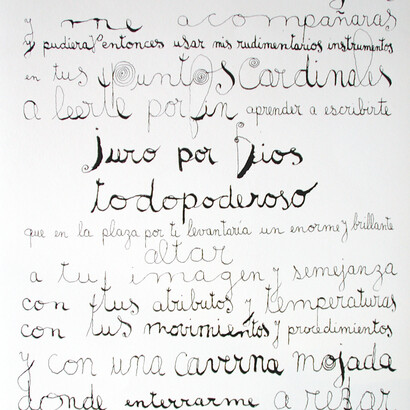 y me acompañaras
y pudiera entonces usar mis rudimentarios instrumentos
en tus puntos cardinales
a leerte por fin aprender a escribirte
juro por Dios
todopoderoso
que en la plaza por ti levantaría un enorme y brillante
altar
a tu imagen y semejanza
con tus atributos y temperaturas
con tus movimientos y procedimientos
y con una caverna mojada
donde enterrarme a rezar